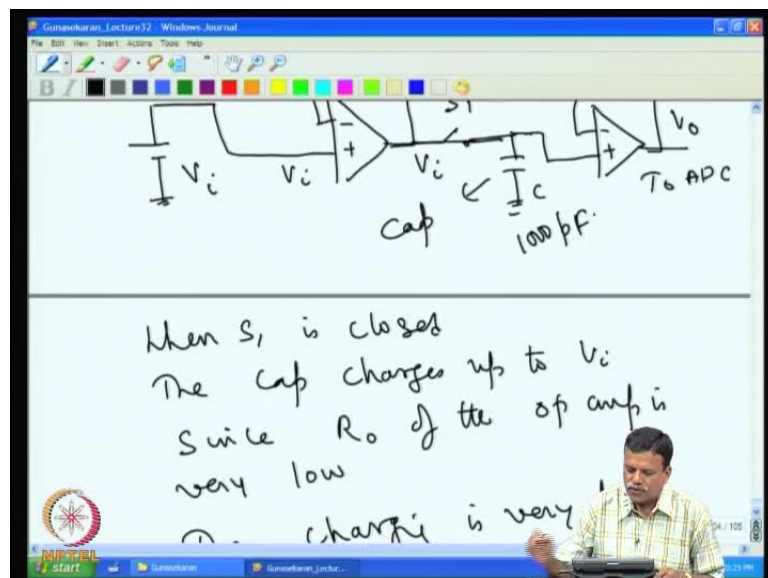 Gunasekaran_Lecture32 - Windows Journal
File Edit View Insert Actions Tools Help
B I
S1
Vi
Vi
-
+
Vi
C
Cap
1000 pF.
-
+
Vo
To ADC
When S1 is closed
The cap charges up to Vi
Since Ro of the op amp is
very low
charge is very
NPTEL
start
Gunasekaran
Gunasekaran_Lectur...
/ 105
0:25 PM